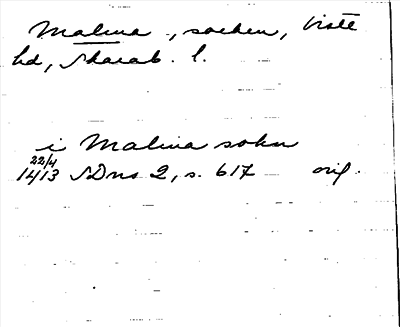 Malina, socken, Viste
hd, Skarab. l.
i Malina sokn
22/4
1413 SDns 2, s. 617 orig.